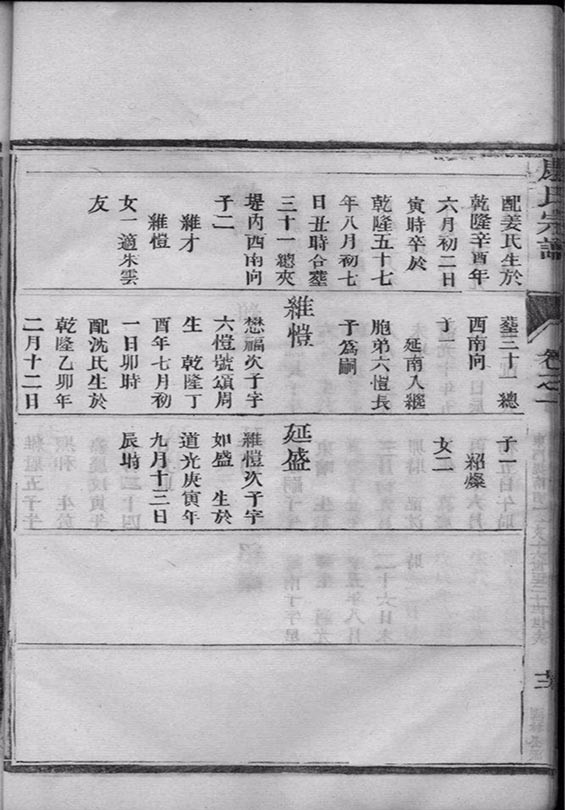 氏宗譜
卷之一
配姜氏生於
乾隆辛酉年
六月初二日
寅時卒於
乾隆五十七
年八月初七
日丑時合墓
三十一總夾
堤內西南向
子二
維才
維愷
女一適朱雲
友
墓三十 總
西南向
子一
延南入繼
胞弟六愷長
子為嗣
維愷
懋福次子字
六愷號頌周
生 乾隆丁
酉年七月初
一日卯時
配沈氏生於
乾隆乙卯年
二月十二日
子 紹燦
女二
延盛
維愷次子字
如盛 生於
道光庚寅年
九月十三日
辰時